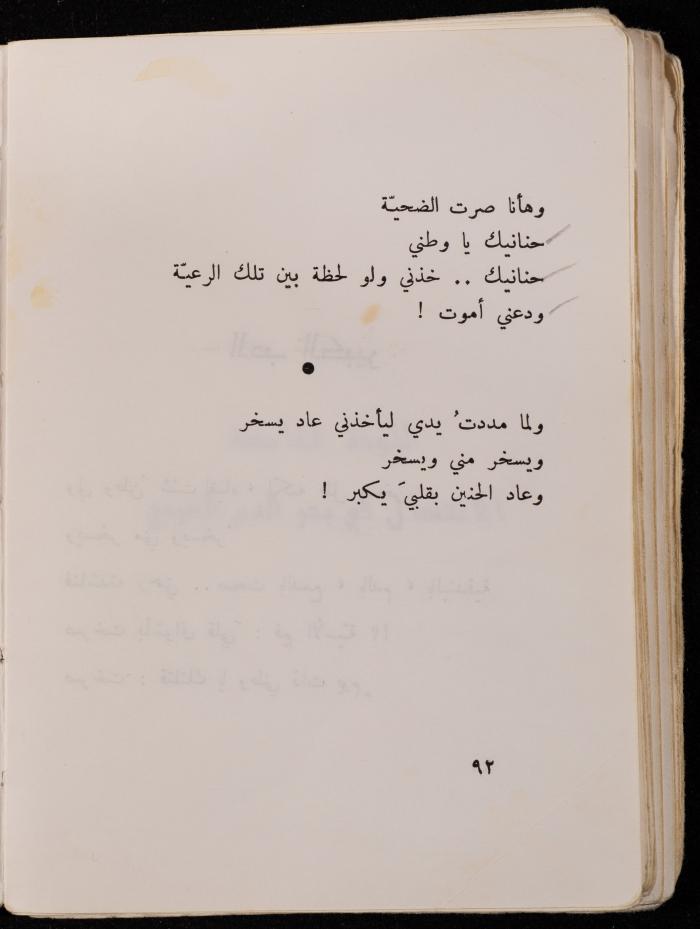 وهأنا صرت الضحيّة
حنانيك يا وطني
حنانيك .. خذني ولو لحظة بين تلك الرعيّة
ودعني أموت !
●
ولما مددتُ يدي ليأخذني عاد يسخر
ويسخر مني ويسخر
وعاد الحنين بقلبيَ يكبر !
٩٢